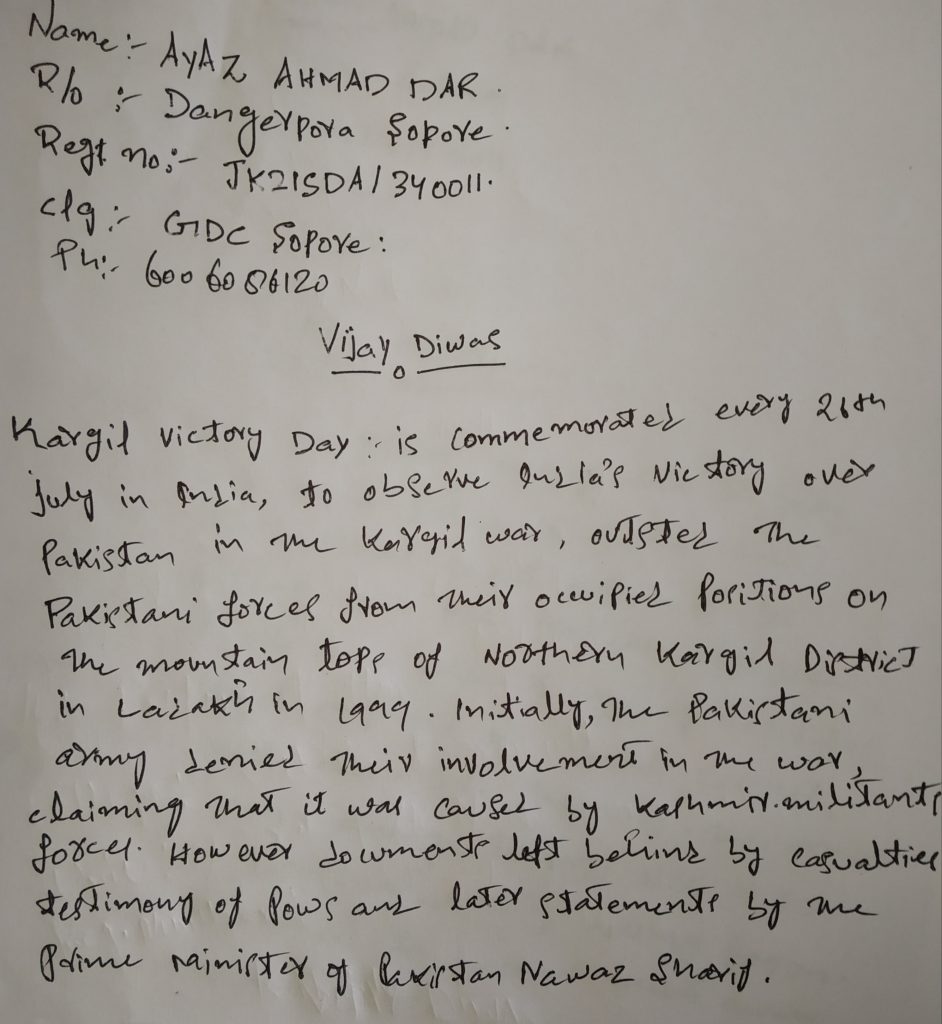 Name:- AyAZ AHMAD DAR.
R/o :- Dangerpora Sopore.
Regt no:- JK21SDA1340011.
clg :- GDC Sopore:
Ph:- 6006086120
Vijay Diwas
Kargil victory Day :- is commemorated every 26th
july in India, to observe India's victory over
Pakistan in the Kargil war, outsted The
Pakistani forces from their occupied Positions on
The mountain tops of Northern Kargil District
in Ladakh in 1999. Initially, The Pakistani
army denied their involvement in the war,
claiming that it was caused by Kashmir.militants
forces. However documents left behind by casualties
testimony of Pows and later statements by the
Prime minister of Pakistan Nawaz Sharif.